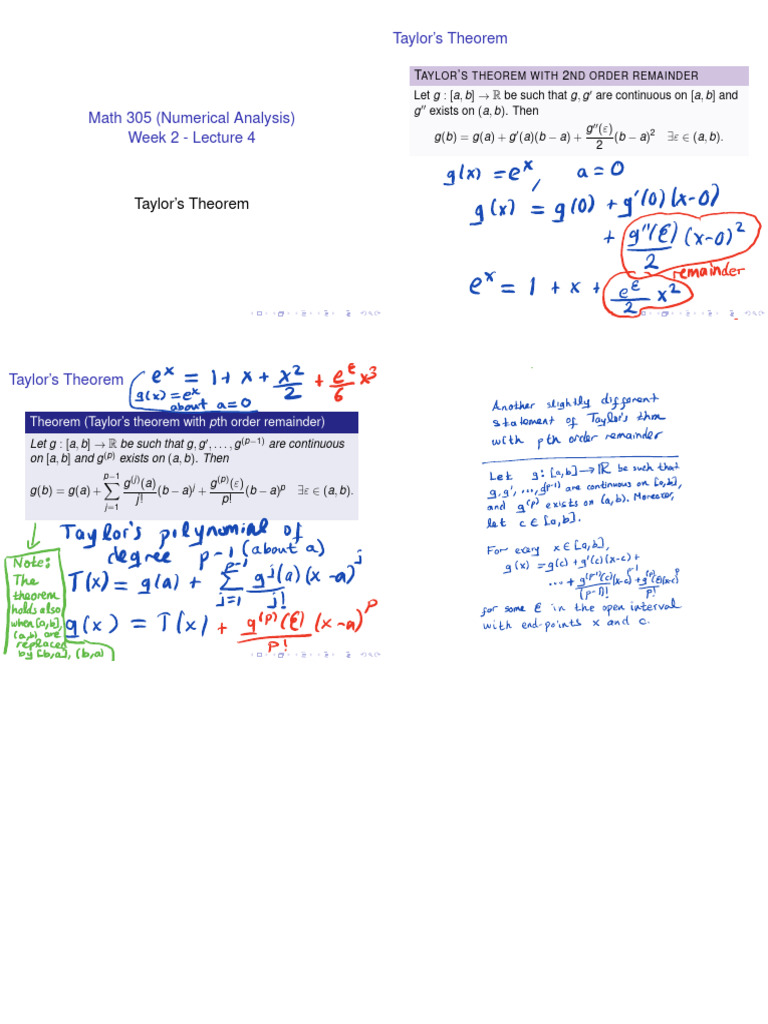 Math 305 (Numerical Analysis)
Week 2 - Lecture 4
Taylor's Theorem
Taylor's Theorem
TAYLOR'S THEOREM WITH 2ND ORDER REMAINDER
Let g : [a, b] → ℝ be such that g, g′ are continuous on [a, b] and
g″ exists on (a, b). Then
g(b) = g(a) + g′(a)(b − a) + g″(ε)/2 (b − a)² ∃ε ∈ (a, b).
g(x) = eˣ, a = 0
g(x) = g(0) + g′(0)(x-0)
+ g″(ε)/2 (x-0)²
remainder
eˣ = 1 + x + e^ε/2 x²
Taylor's Theorem
eˣ = 1 + x + x²/2 + e^ε/6 x³
g(x) = eˣ
about a = 0
Theorem (Taylor's theorem with pth order remainder)
Let g : [a, b] → ℝ be such that g, g′, . . . , g^(p−1) are continuous
on [a, b] and g^(p) exists on (a, b). Then
g(b) = g(a) + ∑_{j=1}^{p−1} g^(j)(a)/j! (b − a)^j + g^(p)(ε)/p! (b − a)^p ∃ε ∈ (a, b).
Taylor's polynomial of
degree p-1 (about a)
T(x) = g(a) + ∑_{j=1}^{p-1} g^j(a)/j! (x-a)^j
g(x) = T(x) + g^(p)(ε)/p! (x-a)^p
Note:
The
theorem
holds also
when [a,b],
(a,b) are
replaced
by [b,a], (b,a)
Another slightly different
statement of Taylor's thm
with pth order remainder
Let g: [a,b] → ℝ be such that
g, g′, ..., g^(p-1) are continuous on [a,b],
and g^(p) exists on (a,b). Moreover,
let c ∈ [a,b].
For every x ∈ [a,b],
g(x) = g(c) + g′(c)(x-c) +
... + g^(p-1)(c)/(p-1)! (x-c)^p-1 + g^(p)(ε)/p! (x-c)^p
for some ε in the open interval
with end-points x and c.